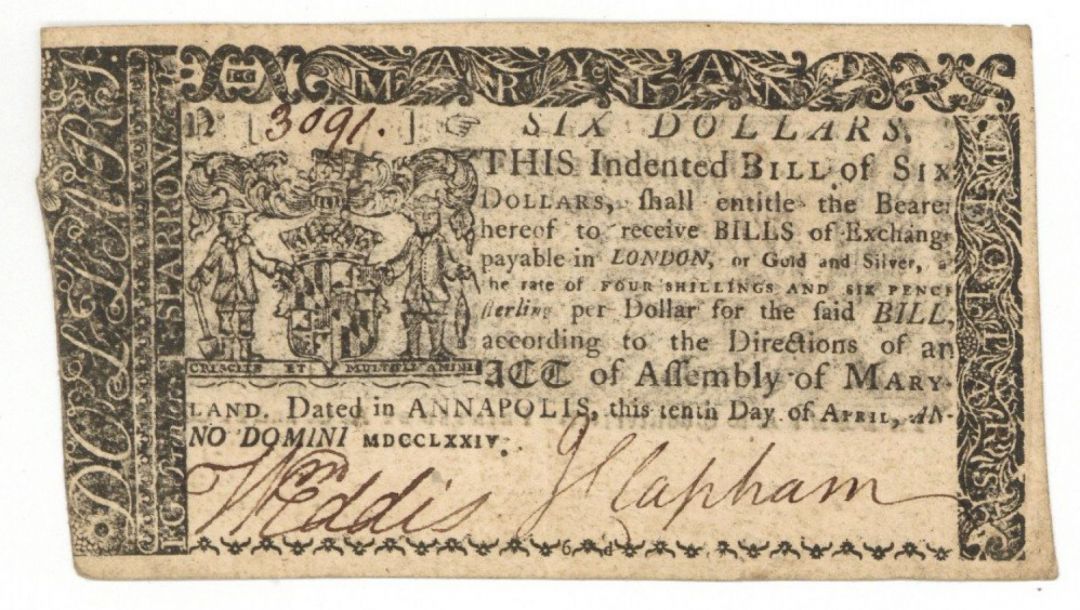 MARYLAND
DOLLARS
T. SPARROW
Nº [3091.] ☞ SIX DOLLARS.
THIS Indented BILL of SIX
DOLLARS, ſhall entitle the Bearer
hereof to receive BILLS of Exchang
payable in LONDON, or Gold and Silver, a
he rate of FOUR SHILLINGS AND SIX PENC
ſterling per Dollar for the ſaid BILL,
according to the Directions of an
ACT of Aſſembly of MARY-
CRESCITE ET MULTIPLICAMINI
LAND. Dated in ANNAPOLIS, this tenth Day of APRIL, AN-
NO DOMINI MDCCLXXIV.
Wm Eddis J Clapham
DOLLARS